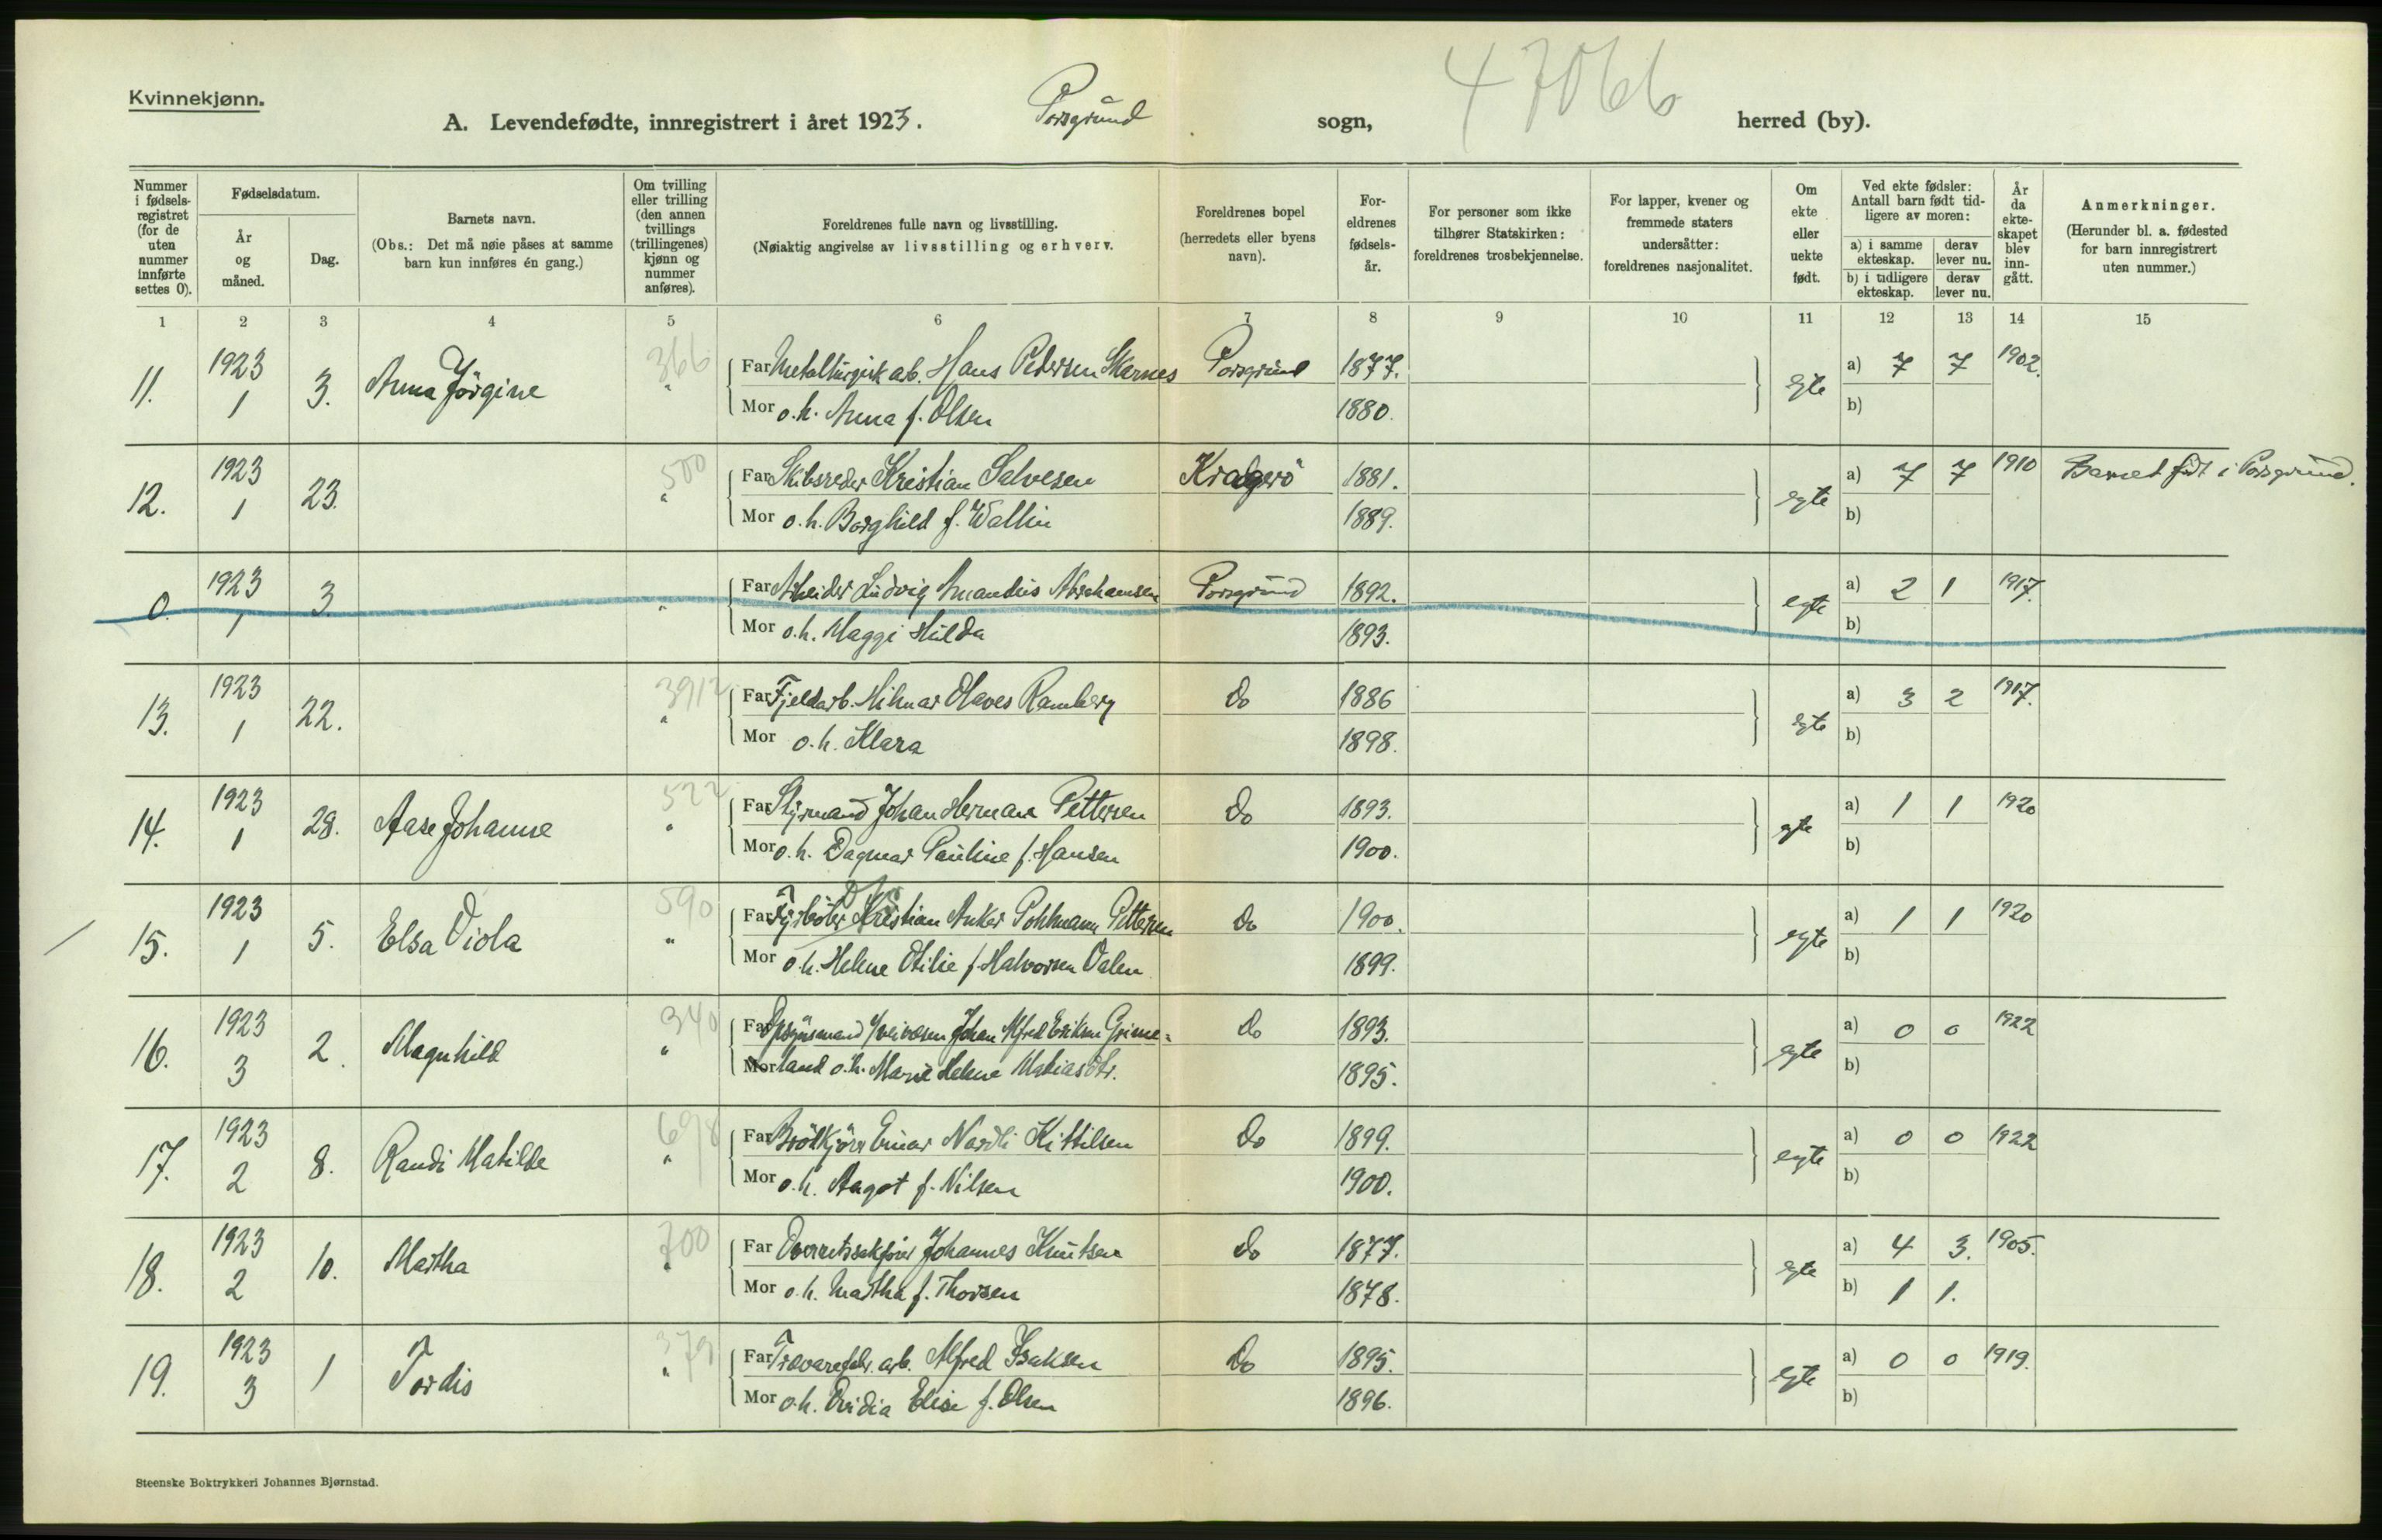 Kvinnekjønn.
A. Levendefødte, innregistrert i året 1923. Porsgrund sogn, 47066 herred (by).
Nummer i fødsels-registret (for de uten nummer innførte settes 0).
Fødselsdatum.
År og måned.
Dag.
Barnets navn.
(Obs.: Det må nøie påses at samme barn kun innføres én gang.)
Om tvilling eller trilling (den annen tvillings (trillingenes) kjønn og nummer anføres).
Foreldrenes fulle navn og livsstilling.
(Nøiaktig angivelse av livsstilling og erhverv.
Foreldrenes bopel (herredets eller byens navn).
For-eldrenes fødsels-år.
For personer som ikke tilhører Statskirken: foreldrenes trosbekjennelse.
For lapper, kvener og fremmede staters undersåtter: foreldrenes nasjonalitet.
Om ekte eller uekte født.
Ved ekte fødsler: Antall barn født tid-ligere av moren:
a) i samme ekteskap. derav lever nu.
b) i tidligere ekteskap. derav lever nu.
År da ekte-skapet blev inn-gått.
Anmerkninger.
(Herunder bl. a. fødested for barn innregistrert uten nummer.)
1 2 3 4 5 6 7 8 9 10 11 12 13 14 15
11. 1923 1 3. Anna Jörgine 366 " Far Metallurgisk arb. Hans Pedersen Skarnes Porsgrund 1877. egte a) 7 7 1902.
Mor o.h. Anna f. Olsen 1880. b)
12. 1923 1 23. 500 " Far Skibsreder Kristian Salvesen Kragerö 1881. egte a) 7 7 1910 Barnet født i Porsgrund.
Mor o.h. Borghild f. Wallin 1889. b)
0. 1923 1 3 " Far Arbeider Ludvig Amandus Abrahamsen Porsgrund 1892. egte a) 2 1 1917.
Mor o.h. Maggi Hulda 1893. b)
13. 1923 1 22. 3912 " Far Fjeldarb. Hilmar Olaves Ramberg do 1886 egte a) 3 2 1917.
Mor o.h. Klara 1898. b)
14. 1923 1 28. Aase Johanne 522 " Far Styrmand Johan Herman Pettersen do 1893. egte a) 1 1 1920
Mor o.h. Dagmar Pauline f. Hansen 1900. b)
15. 1923 1 5. Elsa Viola 590 " Far Fyrböter Kristian Anker Pohlmann Pettersen do 1900. egte a) 1 1 1920
Mor o.h. Helene Otilie f. Halvorsen Valen 1899. b)
16. 1923 3 2. Magnhild 340 " Far Opsynsmand v/veivæsen Johan Alfred Eriksen Grime= do 1893. egte a) 0 0 1922
Mor land o.h. Marie Helene Matiasdtr. 1895. b)
17. 1923 2 8. Randi Matilde 698 " Far Brödkjörer Einar Nardli Kittilsen do 1899. egte a) 0 0 1922
Mor o.h. Aagot f. Nilsen 1900. b)
18. 1923 2 10. Martha 700 " Far Overretssakfører Johannes Knutsen do 1877. egte a) 4 3. 1905.
Mor o.h. Martha f. Thorsen 1878. b) 1 1.
19. 1923 3 1 Tordis 379 " Far Trævarefabr. arb. Alfred Isaksen do 1895. egte a) 0 0 1919.
Mor o.h. Ovidia Elise f. Olsen 1896. b)
Steenske Boktrykkeri Johannes Bjørnstad.